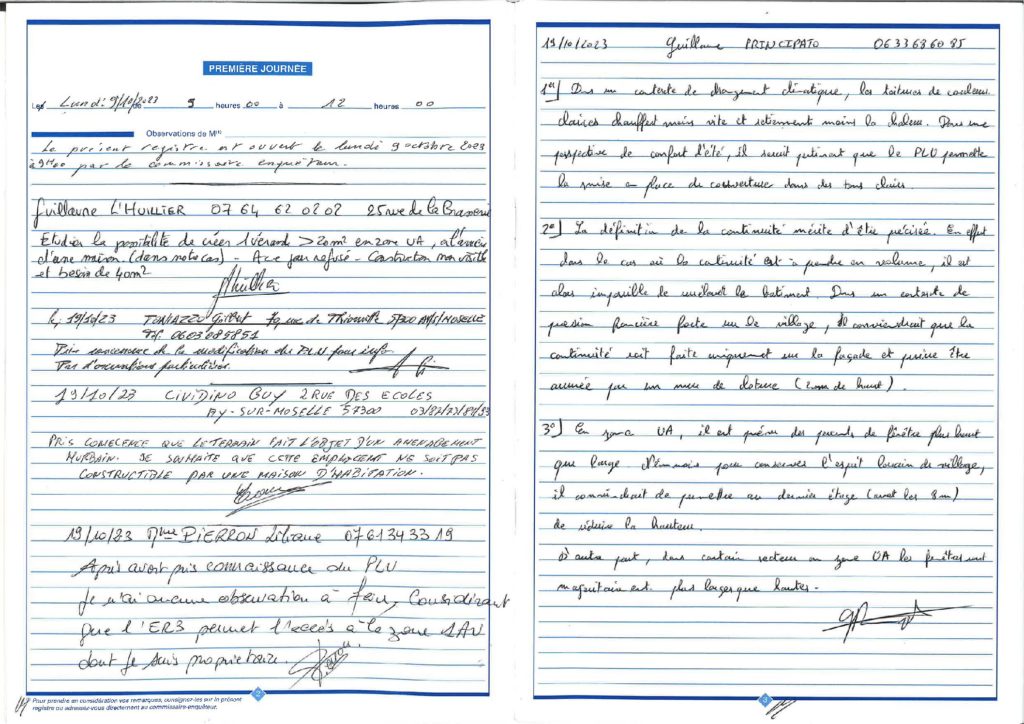 PREMIÈRE JOURNÉE
Les Lundi 9/10/2023 de 9 heures 00 à 12 heures 00
Observations de M
Le présent registre est ouvert le lundi 9 octobre 2023
à 9H00 par le commissaire enquêteur.
Guillaume L'HUILLIER 07 64 62 02 02 25 rue de la Brasserie
Etudier la possibilité de créer 1 véranda > 20m² en zone UA, à l'arrière
d'une maison. (dans notre cas) - A ce jour refusé - Construction non visible
et besoin de 40m²
le, 19/10/23 TONIAZZO Gilbert rue de Thionville 57300 AY/S/MOSELLE
Tél. 0603085851
Pris connaissance de la modification du PLU pour info.
Pas d'observations particulières.
19/10/23 CIVIDINO GUY 2 RUE DES ECOLES
AY-SUR-MOSELLE 57300
PRIS CONECENCE QUE LE TERRAIN FAIT L'OBJET D'UN AMENAGEMENT
HURBAIN. JE SOUHAITE QUE CETTE EMPLOCIENT NE SOIT PAS
CONSTRUCTIBLE PAR UNE MAISON D'HABITATION.
19/10/23 Mme PIERRON Liliane 0761343319
Après avoir pris connaissance du PLU
Je n'ai aucune observation à faire, Considérant
que l'ER3 permet l'accès à la zone 1AU
dont je suis propriétaire.
2
Pour prendre en considération vos remarques, consignez-les sur le présent
registre ou adressez-vous directement au commissaire-enquêteur.
19/10/2023 Guillaume PRINCIPATO 0633686085
1er) Dans un contexte de changement climatique, les toitures de couleurs
claires chauffent moins vite et retiennent moins la chaleur. Dans une
perspective de confort d'été, il serait pertinent que le PLU permette
la mise en place de couverture dans des tons clairs.
2°) La définition de la continuité mérite d'être précisée. En effet
dans le cas où la continuité est à prendre en volume, il est
alors impossible de surélever le bâtiment. Dans un contexte de
pression foncière forte sur le village, il conviendrait que la
continuité soit faite uniquement sur la façade et puisse être
assurée par un mur de cloture (2m de haut).
3°) En zone UA, il est prévu des percements de fenêtre plus haut
que large. Néanmoins pour conserver l'esprit lorrain de village,
il conviendrait de permettre au dernier étage (avant les 8m)
de réduire la hauteur.
D'autre part, dans certain secteur en zone UA les fenêtres sont
majoritairement plus larges que hautes.
3